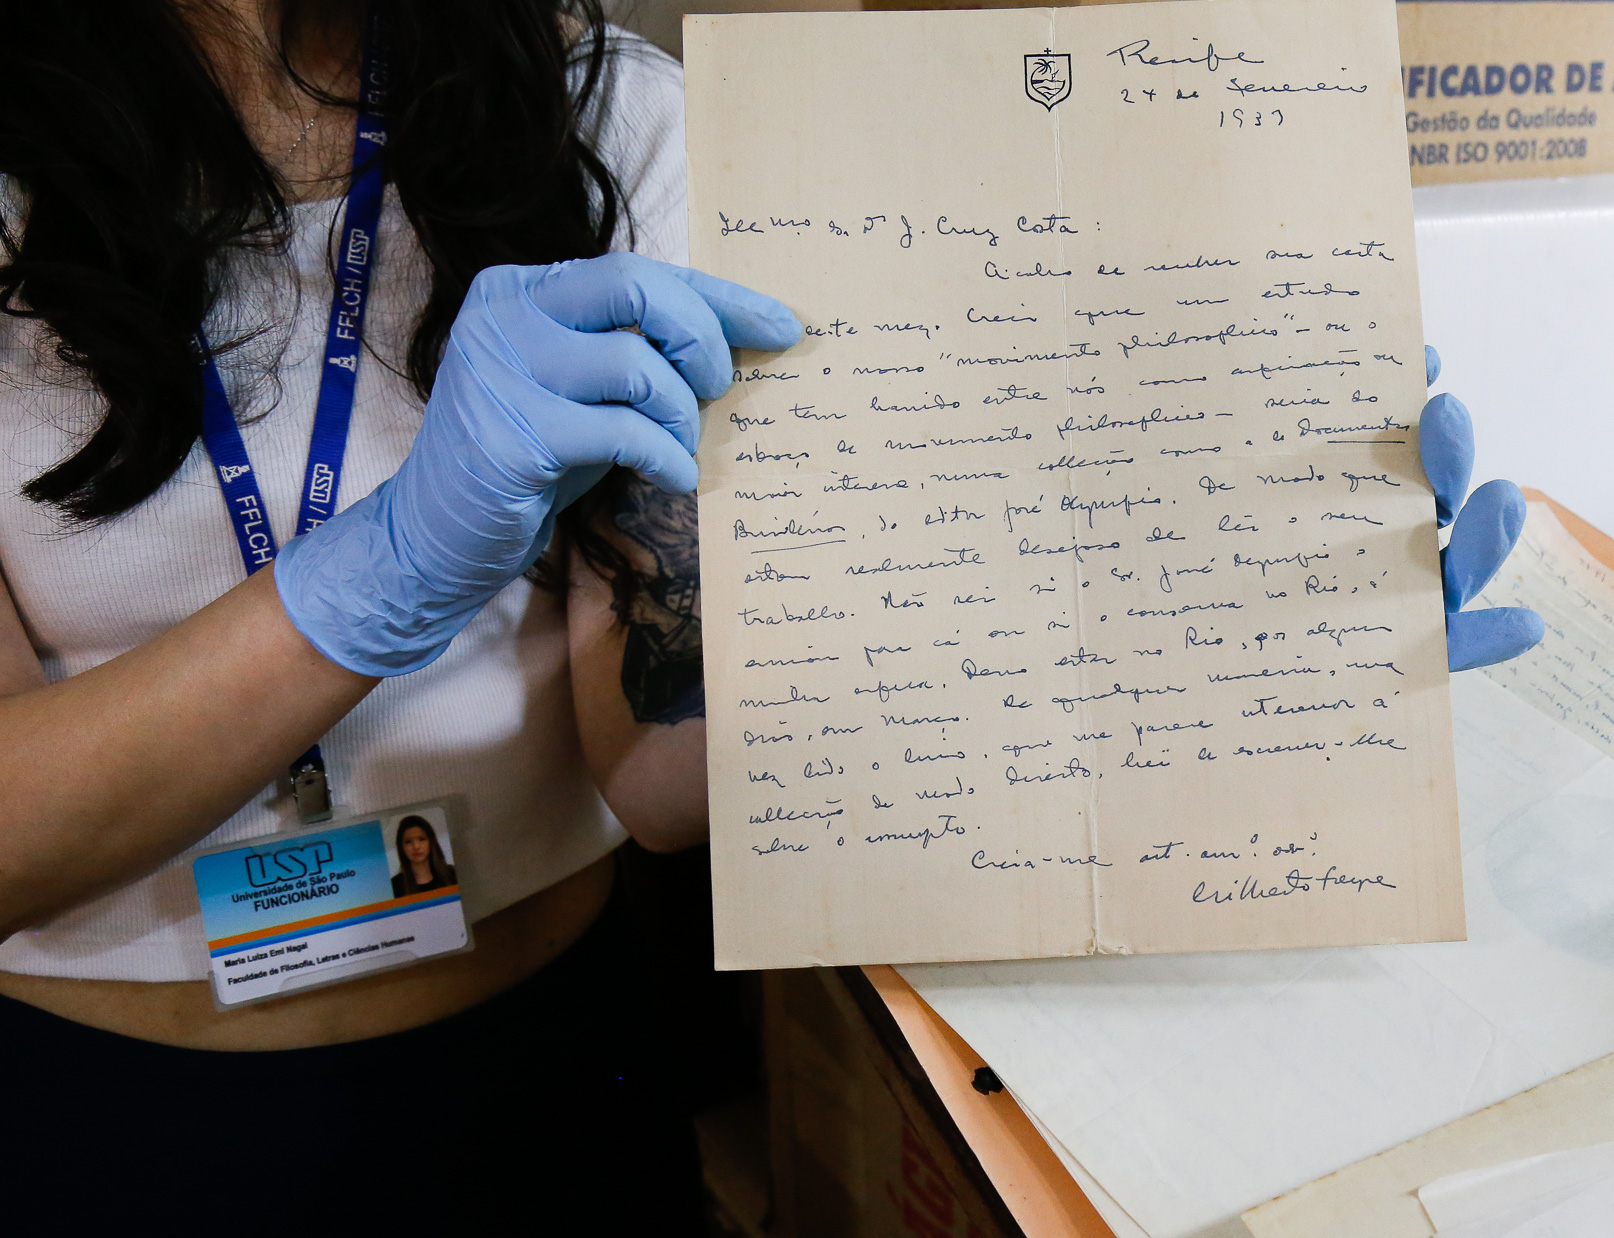 Recife
24 de Fevereiro
1937
Illmo Sr. Dr J. Cruz Costa :
Acabo de receber sua carta
deste mez. Creia que um estudo
sobre o nosso "movimento philosophico" – ou o
que tem havido entre nós como aspiração ou
esboço de movimento philosophico – seria do
maior interesse, numa collecção como a de Documentos
Brasileiros, do editor José Olympio. De modo que
estou realmente desejoso de lêr o seu
trabalho. Não sei si o Sr. José Olympio o
enviou para cá ou si o conserva no Rio, á
minha espera. Devo estar no Rio, por alguns
dias, em Março. De qualquer maneira, uma
vez lido o livro, que me parece interessar á
collecção de modo directo, hei de escrever-lhe
sobre o assumpto.
Creia-me att. amº. obrº.
Gilberto Freyre
FICADOR DE
Gestão da Qualidade
NBR ISO 9001:2008
FFLCH
FFLCH / USP
FFLCH
USP
USP
Universidade de São Paulo
FUNCIONÁRIO
Maria Luiza Emi Nagai
Faculdade de Filosofia, Letras e Ciências Humanas